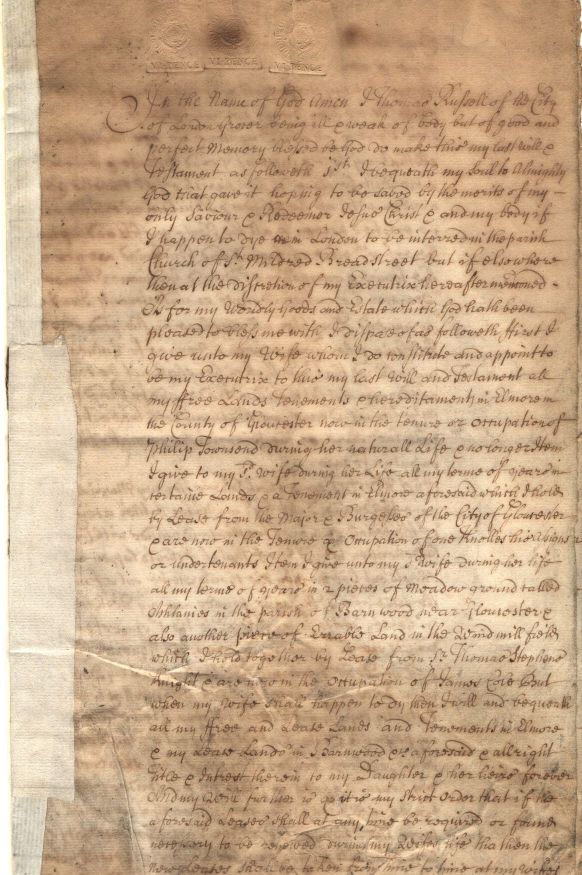 VI PENCE VI PENCE VI PENCE
In the Name of God Amen I Thomas Russell of the City
of London Grocer being ill & weak of body but of good and
perfect Memory blessed be God do make this my last will &
Testament as followeth 1st I bequeath my Soul to Almighty
God that gave it hoping to be saved by the merits of my
only Saviour & Redeemer Jesus Christ & and my body if
I happen to dye in London to be interred in the parish
Church of St Mildred Breadstreet but if elsewhere
then at the discretion of my Executrix hereafter menconed
As for my Worldly Goods and Estate which God hath been
pleased to bless me with I dispose of as followeth ffirst I
give unto my Wife whom I do constitute and appoint to
be my Executrix to this my last Will and Testament all
my ffree Lands Tenements & hereditaments in Elmore in
the County of Gloucester now in the tenure or Occupation of
Philip Townsend during her naturall Life & no longer Item
I give to my sd Wife during her Life all my terme of years in
certaine Lands & a Tenement in Elmore aforesaid which I hold
by Lease from the Major & Burgesses of the City of Gloucester
& are now in the Tenure or Occupation of one Knolles his Assigns
or undertenants Item I give unto my sd Wife during her life
all my terme of years in 2 pieces of Meadow ground called
in the parish of Barnwood near Gloucester &
also another piece of Arrable Land in the Windmill field
which I hold together by Lease from Sr Thomas Stephens
Knight & are now in the Occupation of James Cole But
when my Wife shall happen to dy then I will and bequeath
all my ffree and Lease Lands and Tenements in Elmore
& my Lease Lands in Barnwood aforesaid & all right
title & Interest therein to my Daughter & her heirs forever
And my Will further is & it is my strict order that if the
aforesaid Leases shall at any time be required or
necessary to be renewed during my Wifes life that then the
new Leases shall be taken from time to time at my Wifes